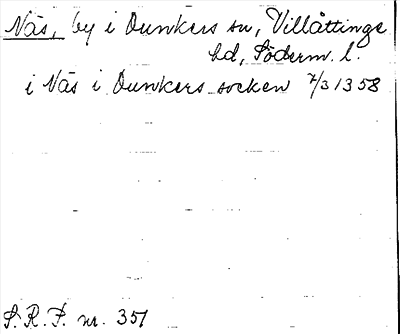 Näs, by i Dunkers sn, Villåttinge
hd, Söderm. l.
i Näs i Dunkers socken 7/3 1358
S. R. P. nr. 351